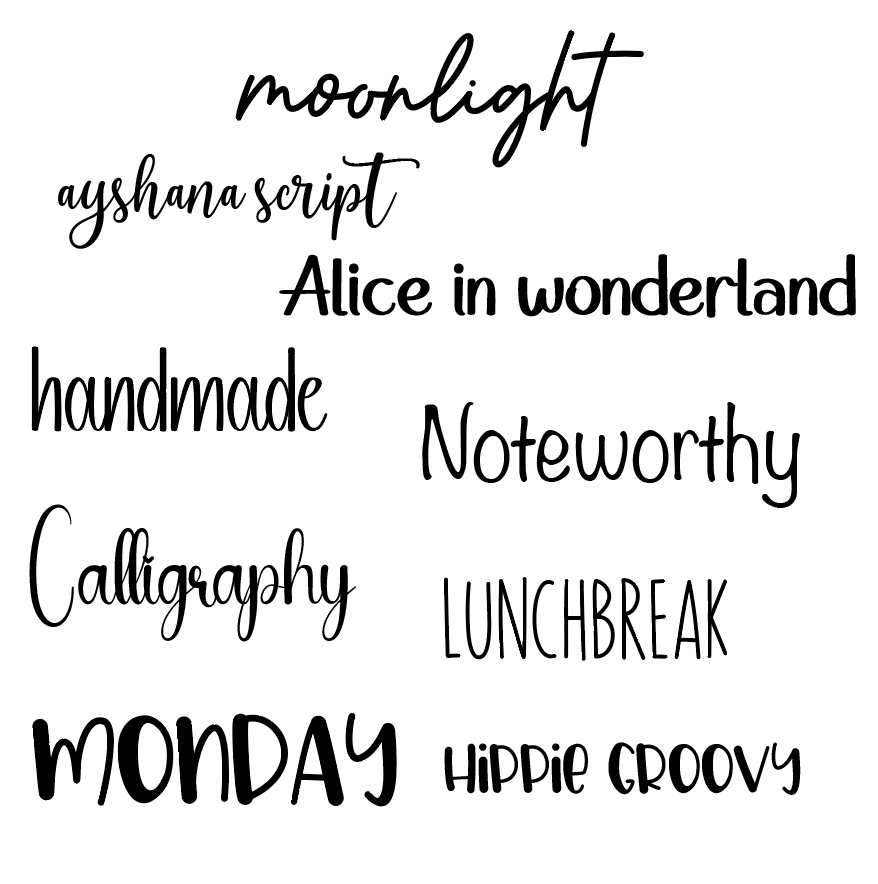 moonlight
ayshana script
Alice in wonderland
handmade
Noteworthy
Calligraphy
LUNCHBREAK
MONDAY
HiPPie GROOVY